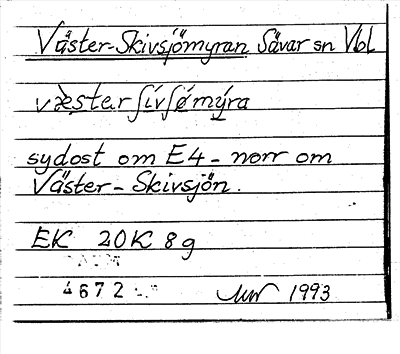 Väster-Skivsjömyran Sävar sn Vbl
væ̀star ʃívʃø̀mýra
sydost om E4 - norr om
Väster - Skivsjön.
EK 20K 8g
4672 1993